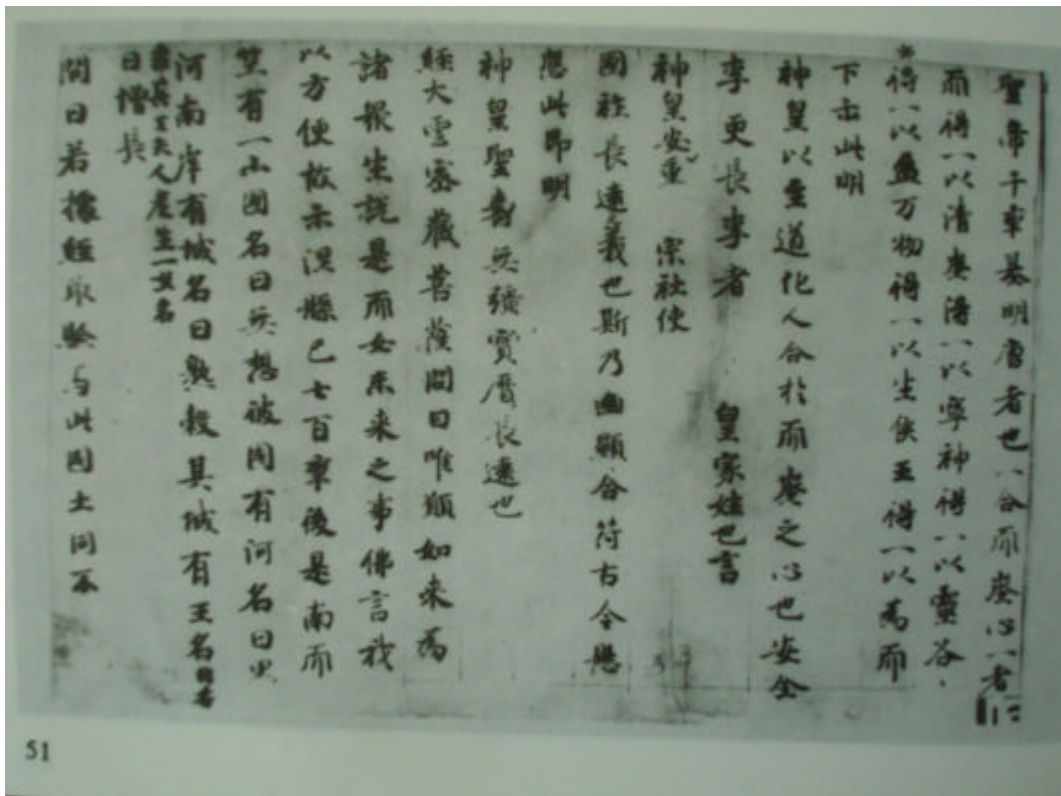 聖帝千年基明唐者也一合𠀑埊心一者
𠀑得一以清埊得一以寧神得一以靈谷
得一以盈万物得一以生侯王得一以為𠀑
下击此明
神皇以至道化人合於𠀑埊之心也安全
李更長李者 皇家姓也言
神皇安重 宗社使
國祚長遠義也斯乃幽顯合符古今懸
應此即明
神皇聖壽無彊寶曆長遠也
經大雲密藏菩薩問曰唯願如來為
諸眾生說是𠀑女未來之事佛言我
以方便故示涅槃已七百年後是南𠀑
竺有一小國名曰無想彼國有河名曰黑
河南岸有城名曰熟穀其城有王名曰等
乘其王夫人產生一女名
曰增長
問曰若據經取驗与此國土同不
51